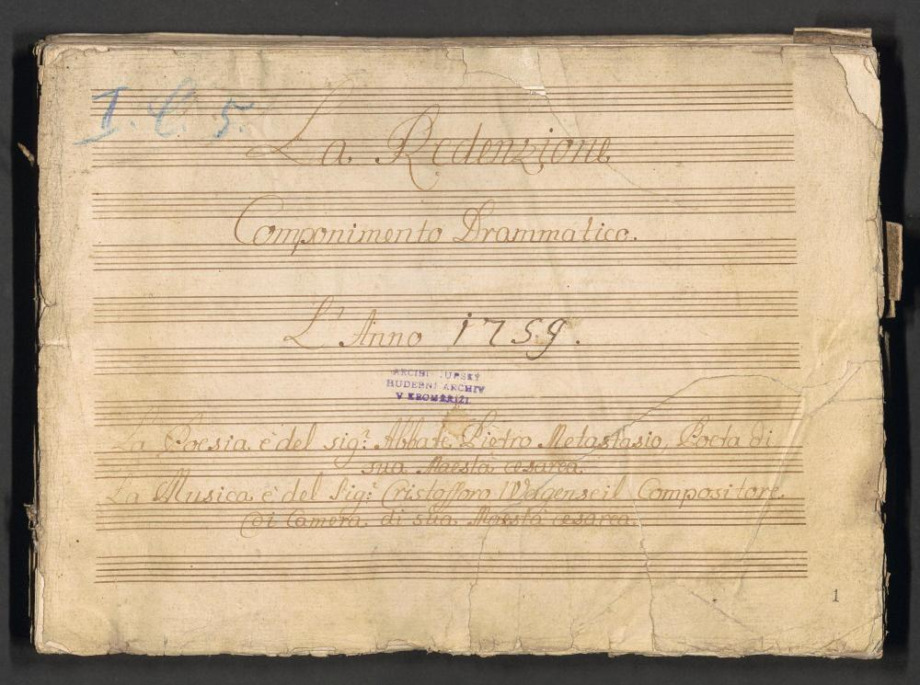 I. C. 5.
La Redenzione
Componimento Drammatico.
L'Anno 1759.
HUDEBNÍ ARCHIV
V KROMĚŘÍŽI
La Poesia è del sig.r Abbate Pietro Metastasio, Poeta di
sua Maestà cesarea
La Musica è del Sig.r Cristofforo Wagenseil Compositore
di Camera di sua Maestà cesarea
1